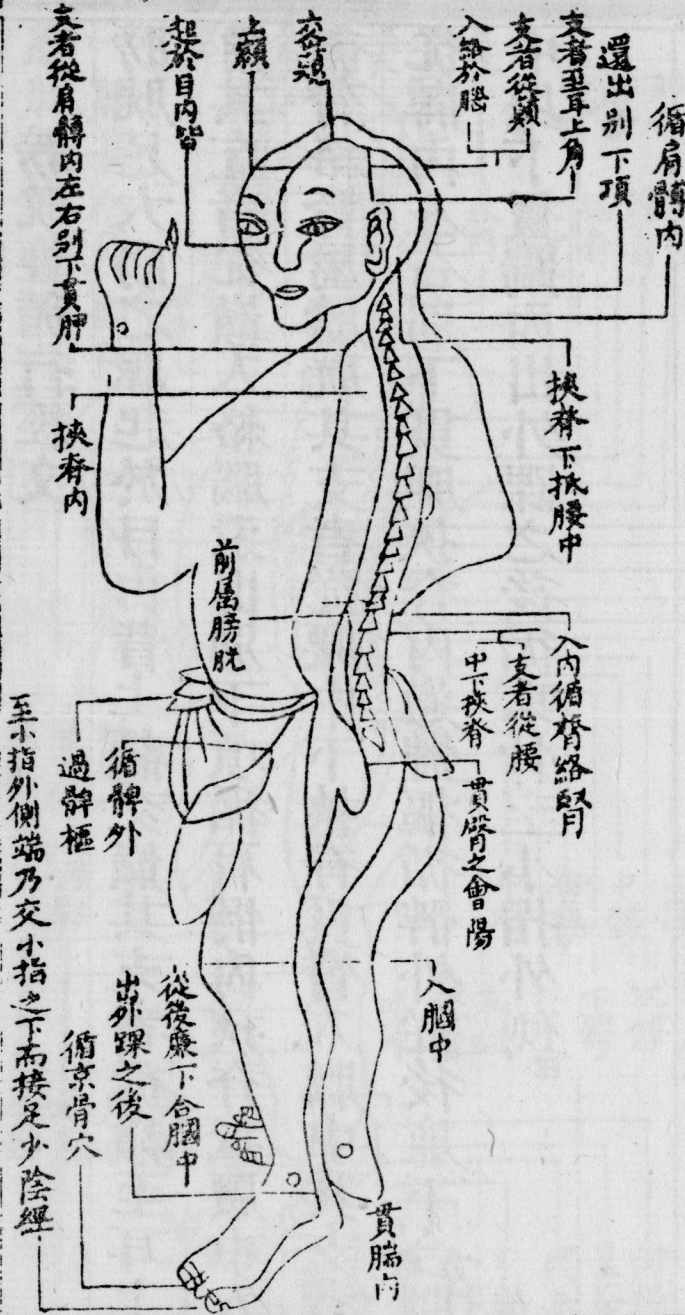 循肩髆內
還出別下項
支者至耳上角
支者從巔
入絡於腦
交巔
上額
起於目內眥
支者從肩髆內左右別下貫胛
挾脊內
挾脊下抵腰中
前屬膀胱
入內循膂絡腎
支者從腰
中下挾脊
貫臀之會陽
循髀外
過髀樞
入膕中
從後廉下合膕中
出外踝之後
循京骨穴
貫腨內
至小指外側端乃交小指之下而接足少陰經